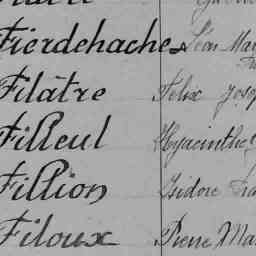 Fierdehaches Léon
Filâtre Félix
Filleul Hyacinthe
Fillion Isidore
Filoux Pierre